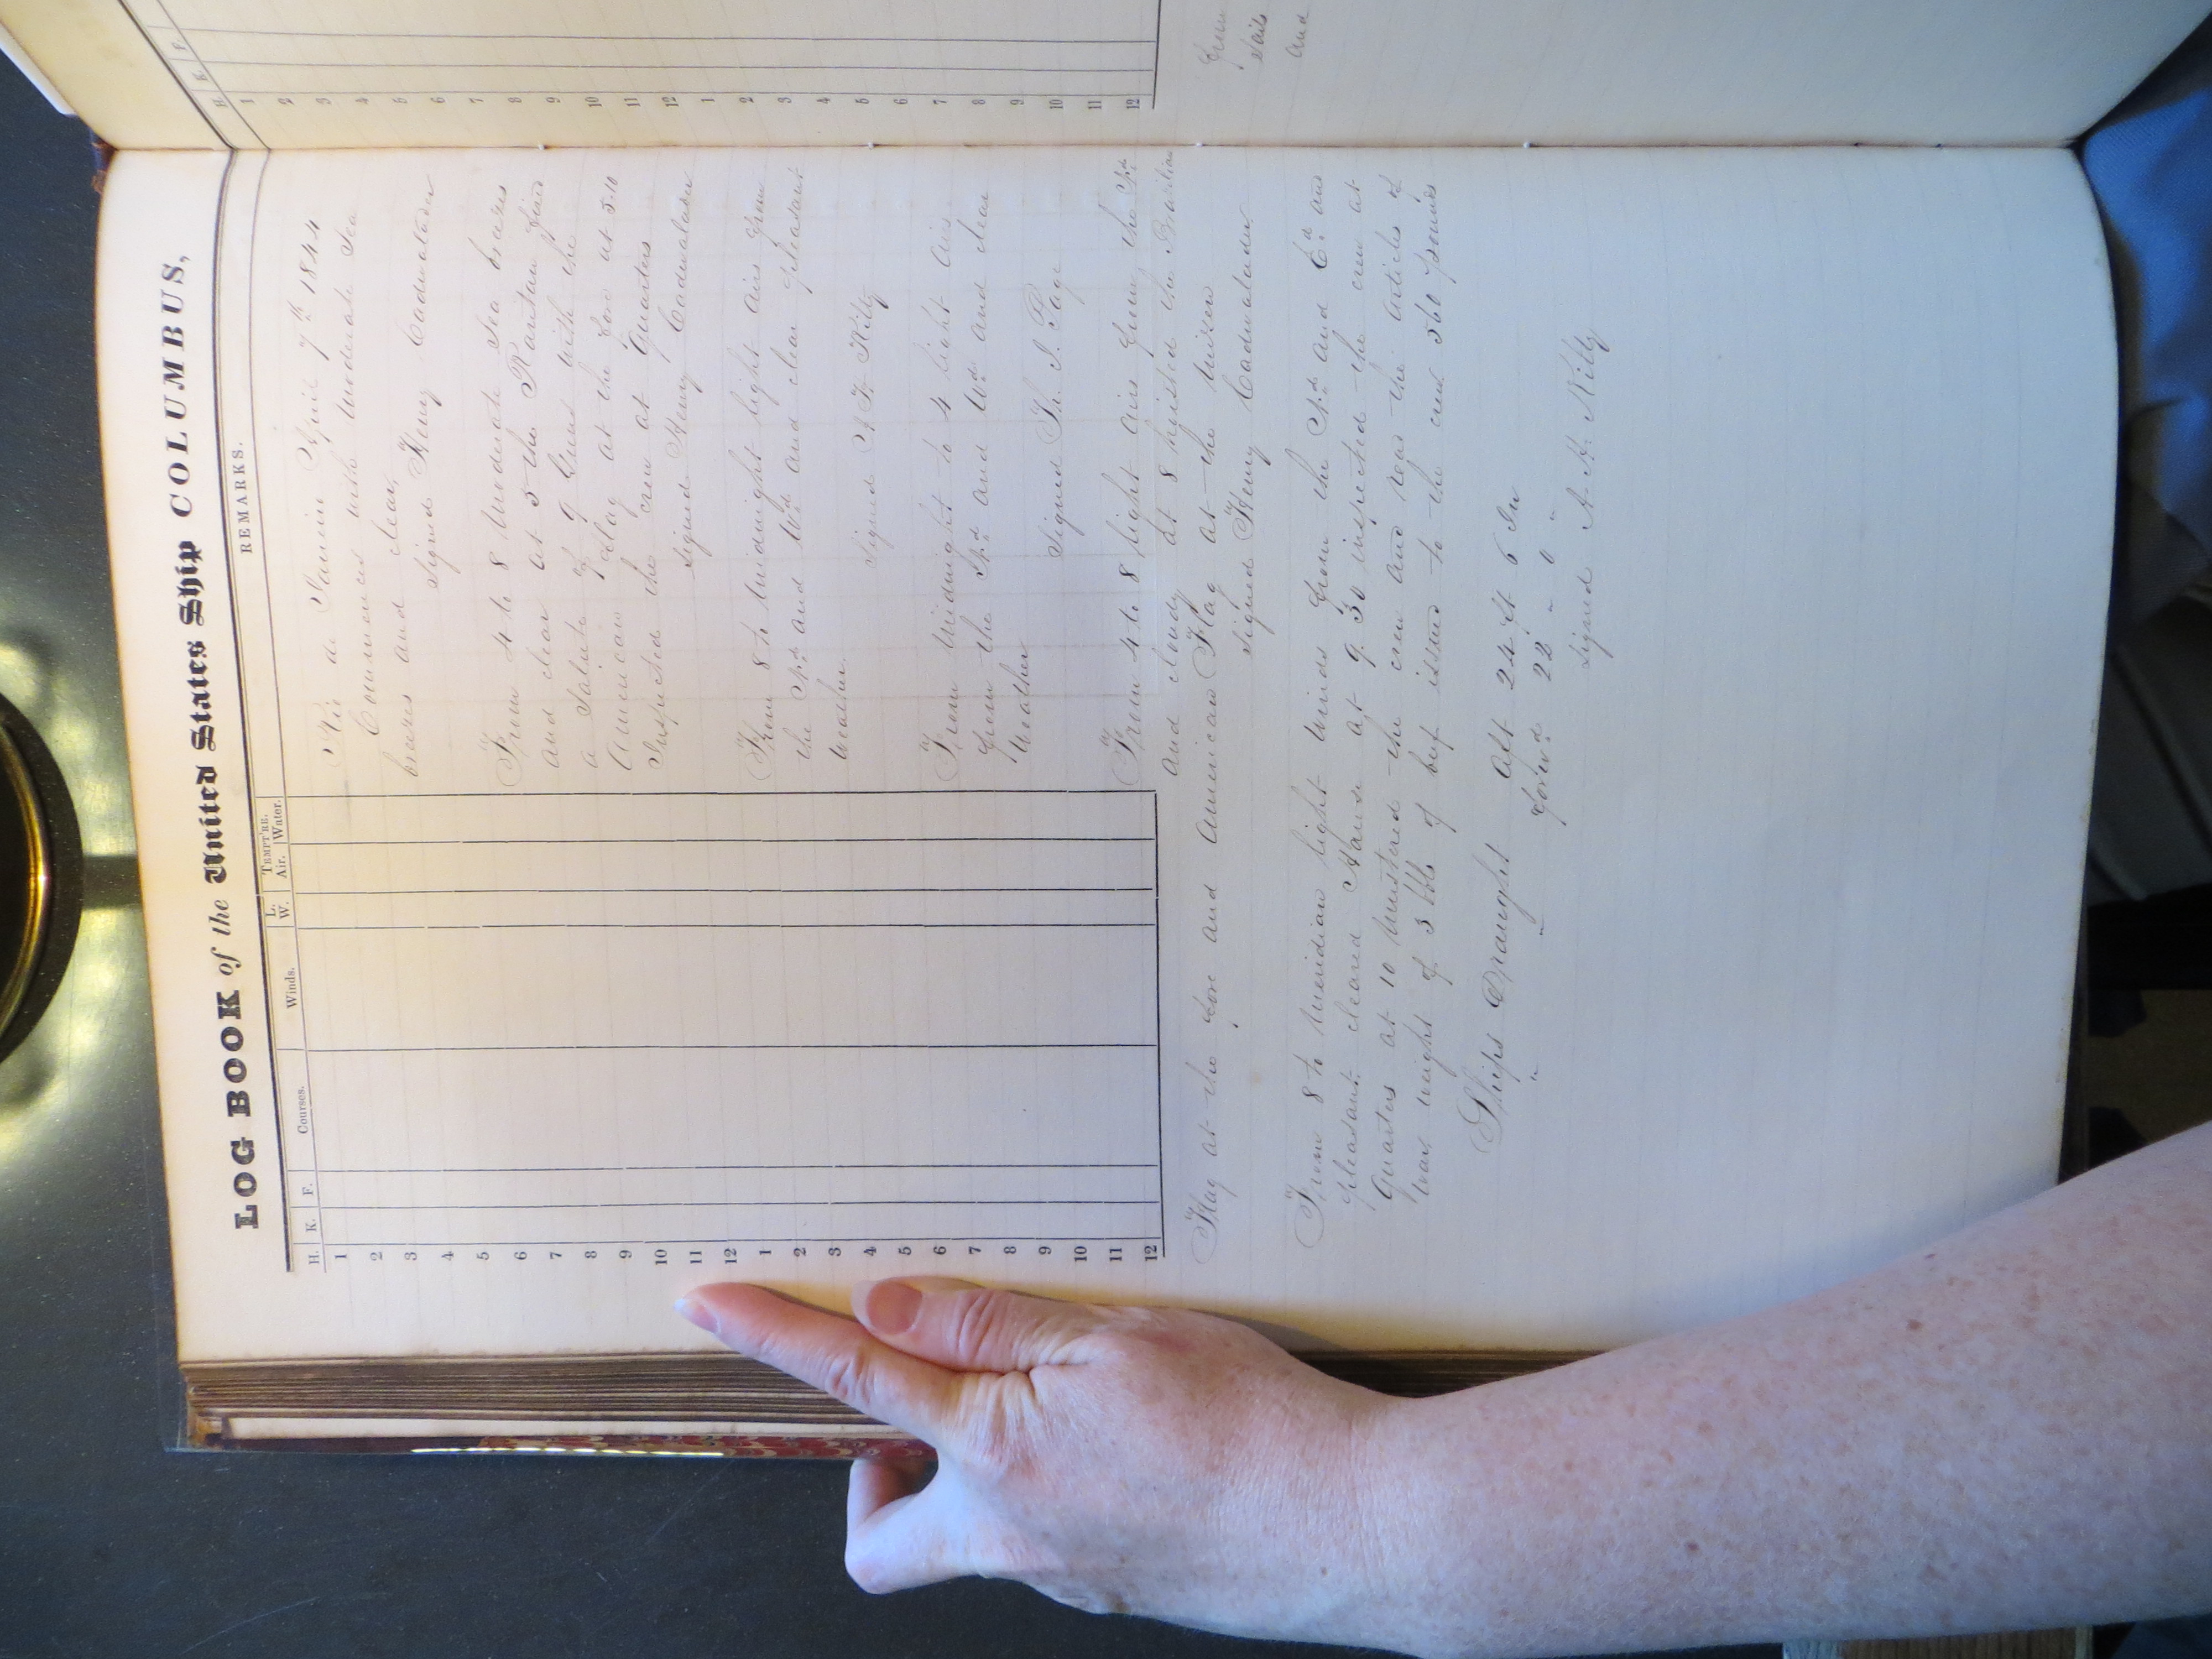 LOG BOOK of the United States Ship COLUMBUS,
H. K. F. Courses. Winds. L. W. TEMPT'RE. Air. Water. REMARKS.
1
2
3
4
5
6
7
8
9
10
11
12
1
2
3
4
5
6
7
8
9
10
11
12
Rio de Janeiro April 7th 1844
Commences with Moderate Sea
breezes and clear,
Signed Henry Cadwalader
From 4 to 8 Moderate Sea breezes
and clear at 5 the Raritan fired
a Salute of 9 Guns with the
American Flag at the fore at 5.10
Inspected the crew at Quarters
Signed Henry Cadwalader
From 8 to Midnight light airs from
the Nd and Wd and clear pleasant
weather.
Signed A. H. Kilty
From Midnight to 4 light airs
from the Nd and Wd and clear
Weather
Signed Th. J. Page
From 4 to 8 light airs from the Nd
and cloudy at 8 hoisted the Brazilian
Flag at the fore and American Flag at the Mizen
Signed Henry Cadwalader
From 8 to Meridian light winds from the Nd and Ed and
pleasant cleared Hawse at 9.30 inspected the crew at
Quarters at 10 Mustered the crew and read the articles of
war, weight of 3 bbls of beef issued to the crew 560 pounds
Ships Draught Aft 24 ft 6 In
" " Forwd 22 " 0 "
Signed A. H. Kilty
H. K. F.
1
2
3
4
5
6
7
8
9
10
11
12
1
2
3
4
5
6
7
8
9
10
11
12
from
Sails
and